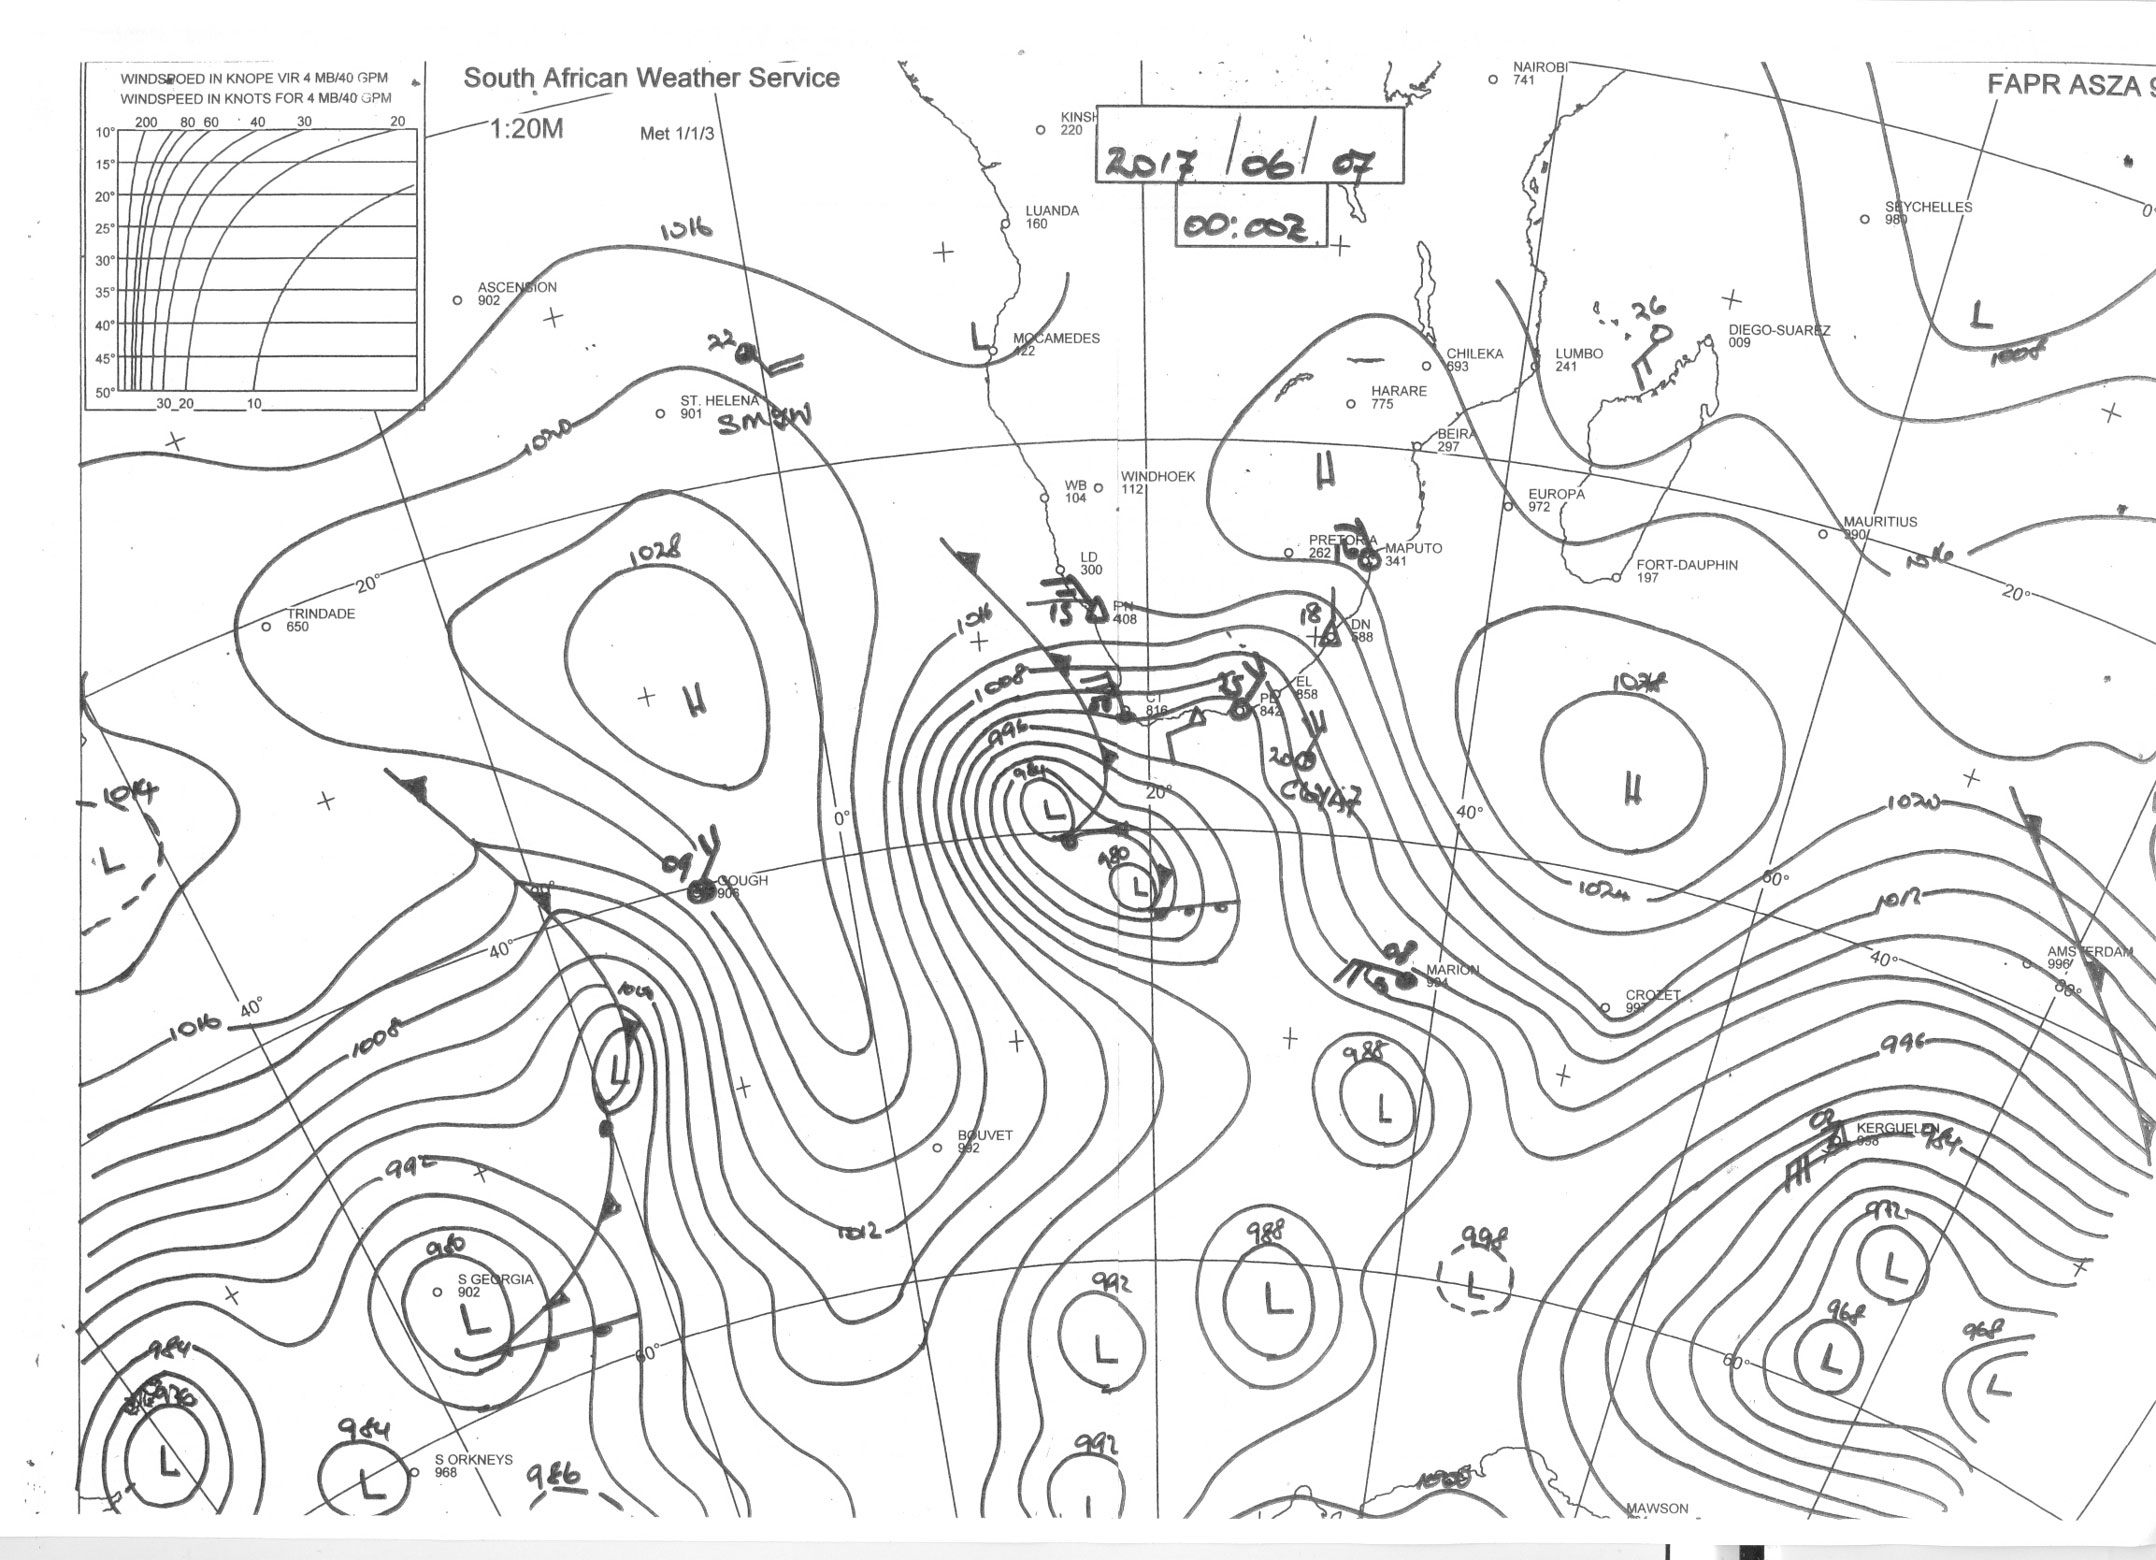 WINDSPOED IN KNOPE VIR 4 MB/40 GPM
WINDSPEED IN KNOTS FOR 4 MB/40 GPM
200 80 60 40 30 20
10°
15°
20°
25°
30°
35°
40°
45°
50°
30 20 10
South African Weather Service
1:20M
Met 1/1/3
FAPR ASZA 9
2017/06/07
00:00Z
NAIROBI
741
KINSH
220
LUANDA
160
SEYCHELLES
980
0°
1016
ASCENSION
902
L
MOCAMEDES
422
26
DIEGO-SUAREZ
009
L
1008
22
CHILEKA
693
LUMBO
241
HARARE
775
ST. HELENA
901
1020
BEIRA
297
H
WB
104
WINDHOEK
112
EUROPA
972
MAURITIUS
990
1016
1028
PRETORIA
262
16
MAPUTO
341
LD
300
FORT-DAUPHIN
197
20°
20°
TRINDADE
650
15
PN
408
1016
18
DN
588
H
1008
25
EL
858
PE
842
CT
816
1028
H
996
20
984
L
20°
0°
40°
1014
L
1020
09
GOUGH
906
980
L
60°
1024
1012
40°
40°
08
MARION
994
40°
AMSTERDAM
996
CROZET
997
1016
1008
L
988
L
996
BOUVET
992
02
KERGUELEN
998
984
992
1012
972
L
980
S GEORGIA
902
L
988
L
998
L
992
L
968
L
968
L
60°
60°
984
976
L
984
L
S ORKNEYS
968
986
992
L
MAWSON